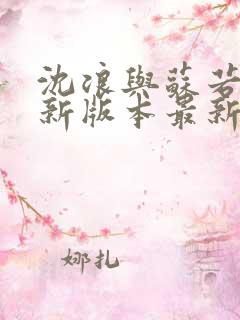 沈浪與蘇若
新版本最新
娜扎